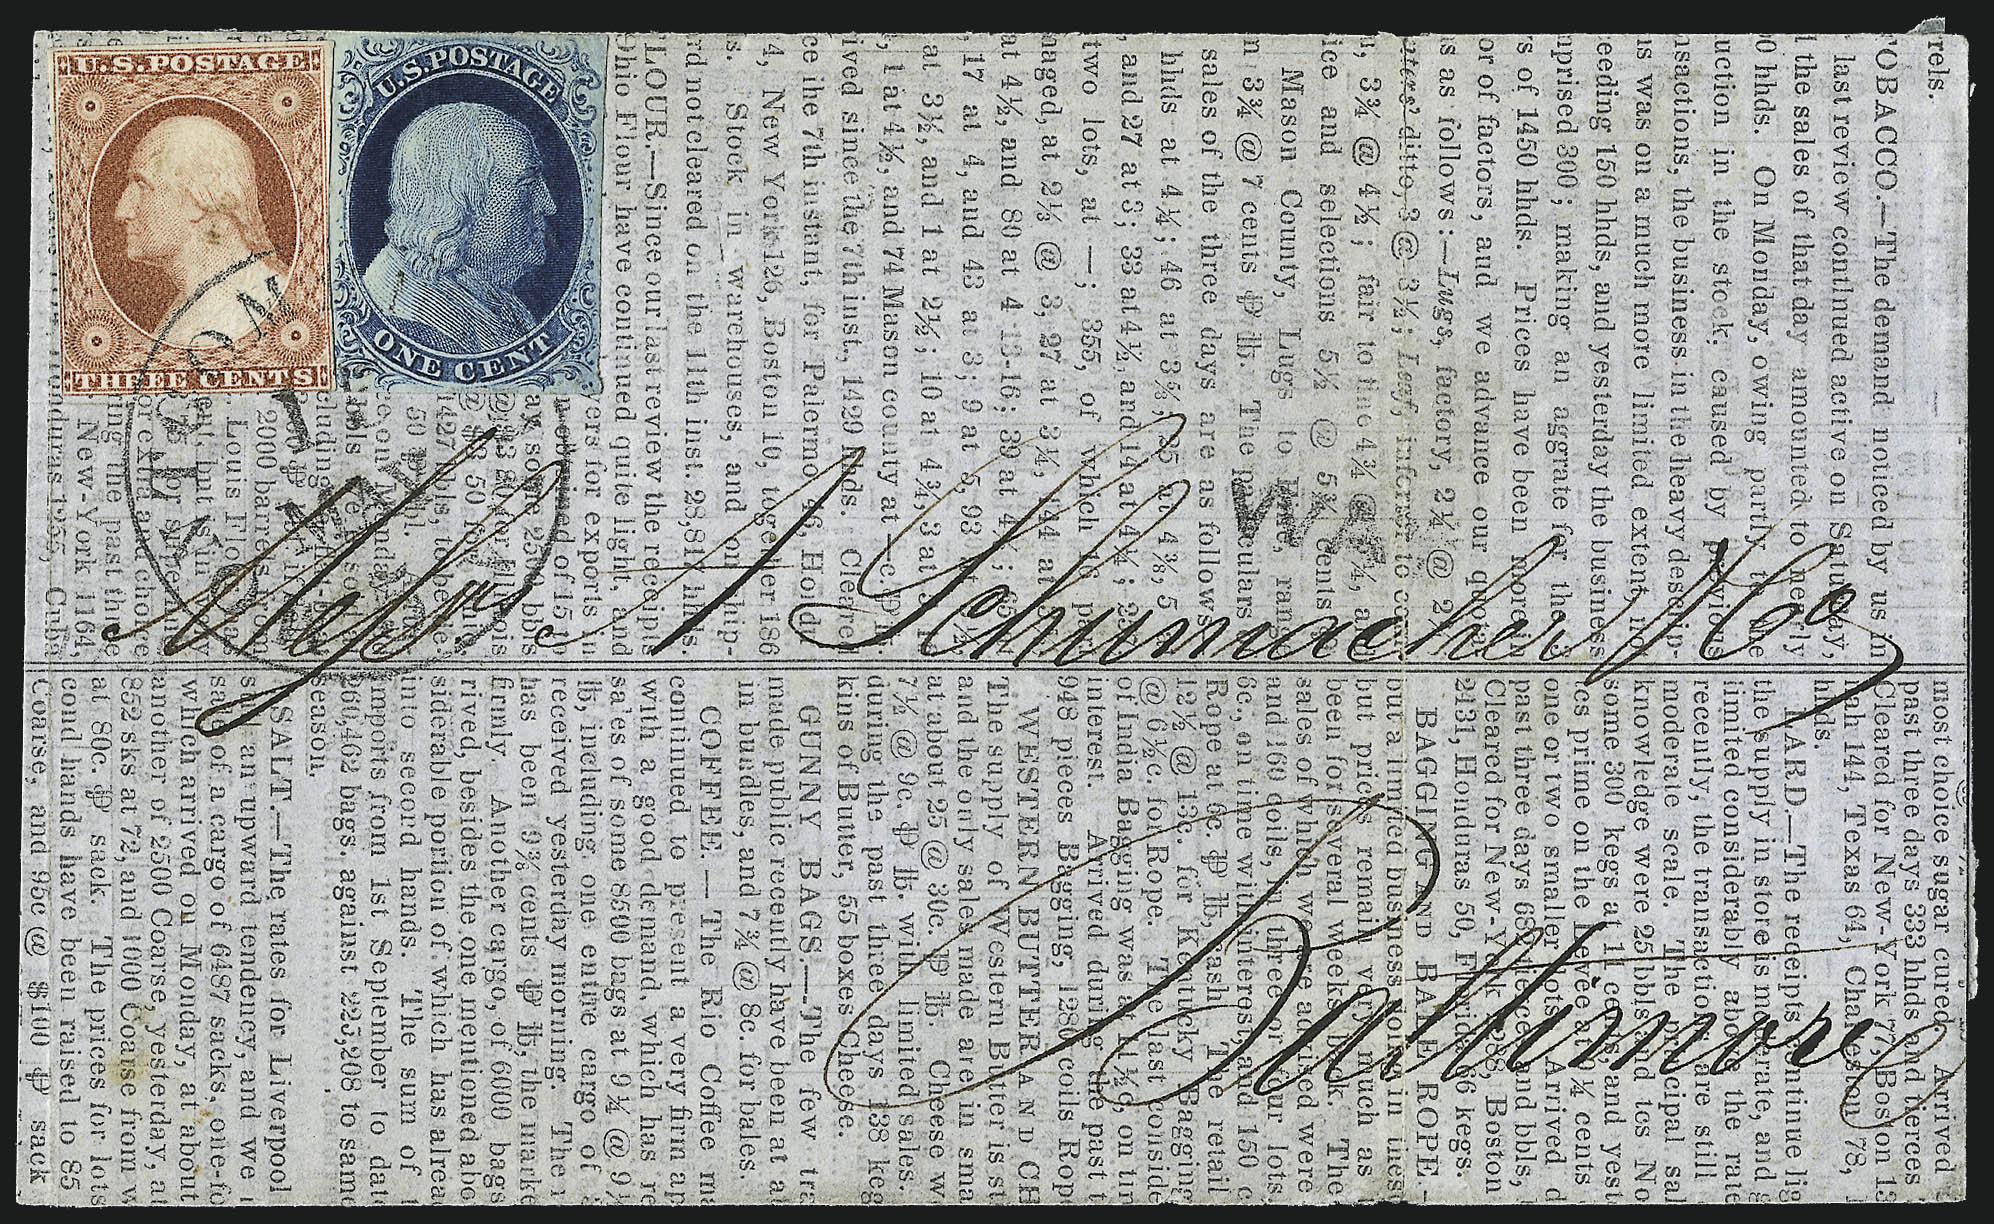 U.S. POSTAGE
THREE CENTS
U.S. POSTAGE
ONE CENT
Messrs A Schumacher & Co
Baltimore
rels.
TOBACCO.—The demand noticed by us in
last review continued active on Saturday,
the sales of that day amounted to nearly
hhds. On Monday, owing partly to the
uction in the stock, caused by previous
nsactions, the business in the leavy descrip-
is was on a much more limited extent, not
eeding 150 hhds, and yesterday the business
mprised 300; making an aggrate for the 3
s of 1450 hhds. Prices have been more in
or of factors, and we advance our quota
s as follows:—Lugs, factory, 2¼ @ 2¾
nters' ditto, 3 @ 3½; Leaf, inferior to com
3¾ @ 4½; fair to fine 4¾ @
ice and selections 5½ @ 5¾ cents
Mason County, Lugs to Fine, range
n 3¾ @ 7 cents ₱ ℔. The particulars
sales of the three days are as follows
hhds at 4¼; 46 at 3⅝, 35 at 4⅜, 5
and 27 at 3; 33 at 4½, and 14 at 4¼;
two lots, at —; 355, of which 16 pac
naged, at 2⅓ @ 3, 27 at 3¼, 44 at
at 4½, and 80 at 4 13-16; 39 at
17 at 4, and 43 at 3; 9 at 5, 93
at 3½, and 1 at 2½; 10 at 4¾, 3 at
1 at 4½, and 74 Mason county at —c.
ived since the 7th inst., 1429 hhds. Cleare
ce the 7th instant, for Palermo 46, Hond
4, New York 126, Boston 10, together 186
s. Stock in warehouses, and on ship-
rd not cleared on the 11th inst. 28,817 hhds.
FLOUR.—Since our last review the receipts
Ohio Flour have continued quite light, and
ers for exports
2500 bbls
2000 barrels from
Louis Flour
or extra and choice
ing the past three
New-York 1164,
nduras 1255, Cuba
most choice sugar cured. Arrived
past three days 333 hhds and tierces
Cleared for New-York 77, Boston 13
ah 144, Texas 64, Charleston 78,
hhds.
LARD.—The receipts continue lig
the supply in store is moderate, and
limited considerably above the rate
recently, the transactions are still
moderate scale. The principal sal
knowledge were 25 bbls and tcs No
some 300 kegs at 11 cents, and yest
tcs prime on the Levee at 9¼ cents
one or two smaller lots. Arrived d
past three days 68 tierces and bbls,
Cleared for New-York 288, Boston
2131, Honduras 50, Florida 66 kegs.
BAGGING AND BALE ROPE.—
but a limited business doing in these
but prices remain very much as
been for several weeks back. The
sales of which we are advised were
and 160 coils, in three or four lots
6c., on time with interest, and 150 c
Rope at 6c. ₱ ℔, cash. The retail
12½ @ 13c. for Kentucky Bagging
@ 6½c. for Rope. The last conside
of India Bagging was at 11½c, on tim
interest. Arrived during the past t
948 pieces Bagging, 1280 coils Rop
WESTERN BUTTER AND CH
The supply of Western Butter is st
and the only sales made are in sma
at about 25 @ 30c. ₱ ℔. Cheese w
7½ @ 9c. ₱ ℔. with limited sales.
during the past three days 138 keg
kins of Butter, 55 boxes Cheese.
GUNNY BAGS.—The few tra
made public recently have been at
in bundles, and 7¾ @ 8c. for bales.
COFFEE.—The Rio Coffee ma
continued to present a very firm ap
with a good demand, which has re
sales of some 8500 bags at 9¼ @ 9½
℔, including one entire cargo of
received yesterday morning. The
has been 9⅜ cents ₱ ℔, the marke
firmly. Another cargo, of 6000 bags
rived, besides the one mentioned abo
siderable portion of which has alrea
into second hands. The sum of t
imports from 1st September to date
260,462 bags. against 225,208 to same
season.
SALT.—The rates for Liverpool
an upward tendency, and we
sales of a cargo of 6487 sacks, one-fo
which arrived on Monday, at about
another of 2500 Coarse, yesterday, at
852 sks at 72, and 1000 Coarse from w
at 80c. ₱ sack. The prices for lots
cond hands have been raised to 85
Coarse, and 95c @ $1 00 ₱ sack